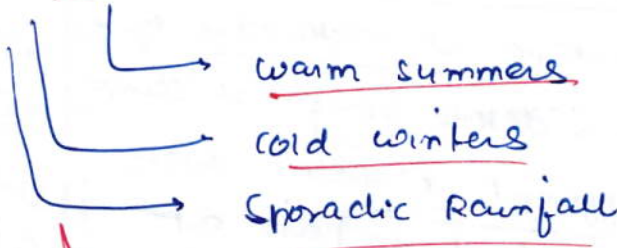 warm summers
cold winters
Sporadic Rainfall